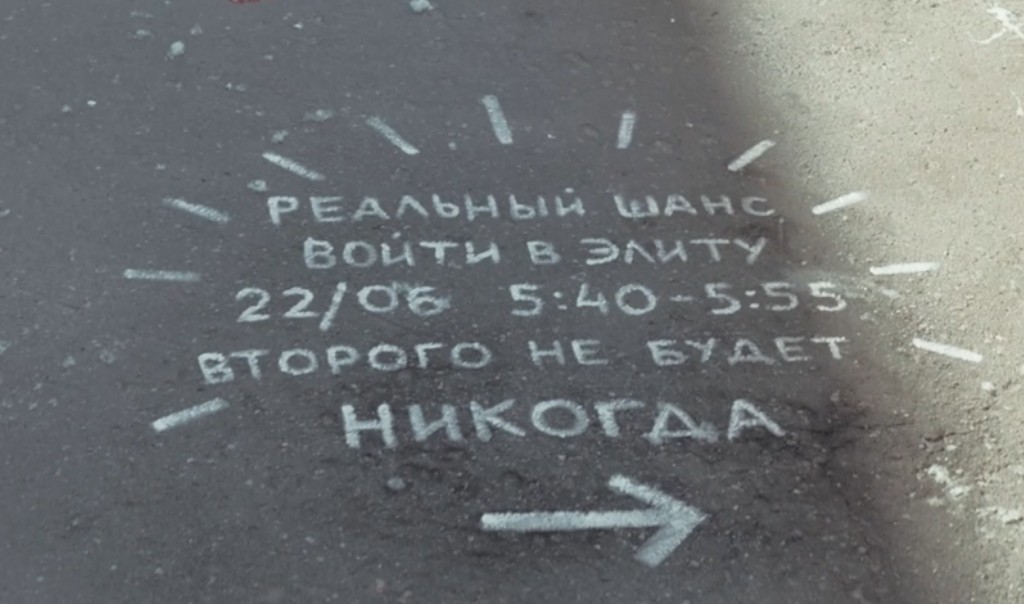 РЕАЛЬНЫЙ ШАНС
ВОЙТИ В ЭЛИТУ
22/06 5:40-5:55
ВТОРОГО НЕ БУДЕТ
НИКОГДА